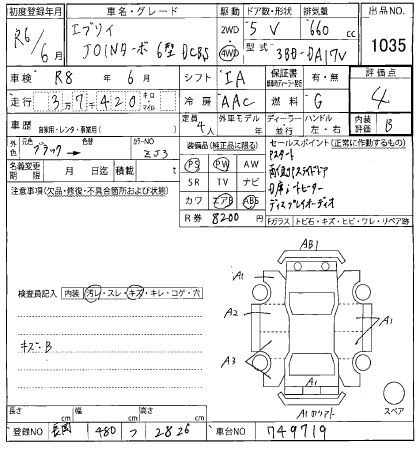 初度登録年月 車名・グレード 駆動 ドア数・形状 排気量 出品NO.
R6/6月 エブリイ JOINターボ 6型 DCBS 2WD 4WD 5 V 660 cc 1035
型式 3BD-DA17V
車検 R8年 6月 シフト IA 保証書 有・無 評価点
走行 37,420 キロ マイル 冷房 AAC 燃料 G 4
車歴 自家用・レンタ・事業用( ) 定員 4人 外車モデル 年 ディーラー 並行 ハンドル 左・右 内装評価 B
外色 元色 ブラック 色替 カラーNO ZJ3
装備品(純正品に限る) セールスポイント(正常に作動するもの)
名義変更期限 月 日迄 積載 t
PS PW AW
SR TV ナビ
カワ エアB ABS
Aスタート
両側スライドドア
D席シートヒーター
ディスプレイオーディオ
注意事項(欠品・修復・不具合箇所および状態)
R券 8200円 Fガラス トビ石・キズ・ヒビ・ワレ・リペア跡
検査員記入 内装 汚レ・スレ・キズ・キレ・コゲ・穴
キズ・B
AB1
A1
A2
A3
A1
A1
A1
スペア
長さ cm 幅 cm 高さ cm
登録NO 長岡 480 つ 2826 車台NO 749719